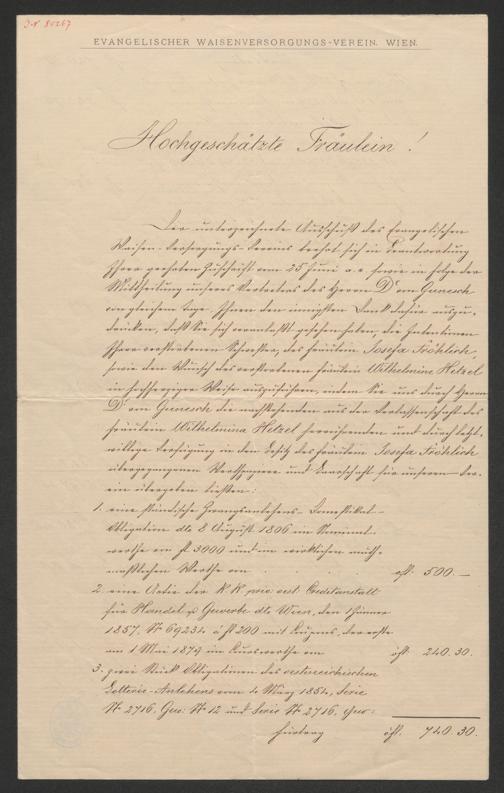 J.N. 80267
EVANGELISCHER WAISENVERSORGUNGS-VEREIN. WIEN.
Hochgeschätzte Fräulein!
Der unterzeichnete Ausschuß des Evangelischen
Waisen-Versorgungs-Vereins beehrt sich in Beantwortung
Ihrer geehrten Zuschrift vom 25 Juni a. c. sowie in Folge der
Mittheilung unseres Vertreters des Herrn Dr von Gunesch
von gleichem Tage Ihnen den innigsten Dank dafür auszu-
drücken, daß Sie sich veranlaßt gesehen haben, die Intentionen
Ihrer verstorbenen Schwester, des Fräulein Josefa Fröhlich,
sowie den Wunsch des verstorbenen Fräulein Wilhelmine Hetzel
in hochherziger Weise auszuführen, indem Sie uns durch Herrn
Dr von Gunesch die nachstehenden aus der Verlassenschaft des
Fräulein Wilhelmina Hetzel herrührenden und durch letzt-
willige Verfügung in den Besitz des Fräulein Josefa Fröhlich
übergegangenen Werthpapiere und Baarschaft für unseren Ver-
ein übergeben ließen:
1. eine ständische Zwangsanlehens-Domestikal-
Obligation ddo 8 August 1806 im Nominal-
werthe von fl 3000 und im wirklichen muth-
maßlichen Werthe von öfl. 500.—
2. eine Actie der K. K. priv. öst. Creditanstalt
für Handel u. Gewerbe ddo Wien, den 1 Jänner
1857, No 69234 à fl 200 mit Coupons, der erste
am 1 Mai 1879 im Curswerthe von öfl. 240.30.
3. zwei Stück Obligationen des oesterreichischen
Lotterie-Anlehens vom 4 März 1854, Serie
No 2716, Gew: No 12 und Serie No 2716, Gew:
Fürtrag öfl. 740.30.